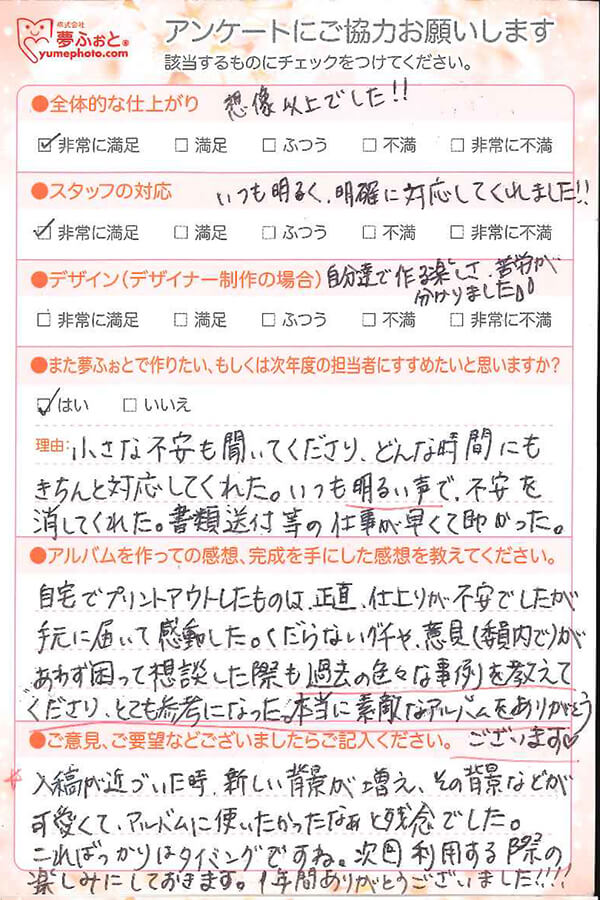 株式会社
夢ふぉと®
yumephoto.com
アンケートにご協力お願いします
該当するものにチェックをつけてください。
●全体的な仕上がり 想像以上でした!!
☑非常に満足 □満足 □ふつう □不満 □非常に不満
●スタッフの対応 いつも明るく、明確に対応してくれました!!
☑非常に満足 □満足 □ふつう □不満 □非常に不満
●デザイン(デザイナー制作の場合) 自分達で作る楽しさ、苦労が
分けりました
□非常に満足 □満足 □ふつう □不満 □非常に不満
●また夢ふぉとで作りたい、もしくは次年度の担当者にすすめたいと思いますか?
☑はい □いいえ
理由:小さな不安も聞いてくださり、どんな時間にも
きちんと対応してくれた。いつも明るい声で、不安を
消してくれた。書類送付等の仕事が早くて助かった。
●アルバムを作っての感想、完成を手にした感想を教えてください。
自宅でプリントアウトしたものは、正直、仕上りが不安でしたが
手元に届いて感動した。くだらないグチや、意見(委員内で)が
あわず困って想談した際も過去の色々な事例を教えて
くださり、とても参考になった。本当に素敵なアルバムをありがとう
●ご意見、ご要望などございましたらご記入ください。 ございます♡
入稿が近づいた時、新しい背景が増え、その背景などが
可愛くて、アルバムに使いたかったなぁと残念でした。
こればっかりはタイミングですね。次回利用する際の
楽しみにしておきます。1年間ありがとうございました!!!!